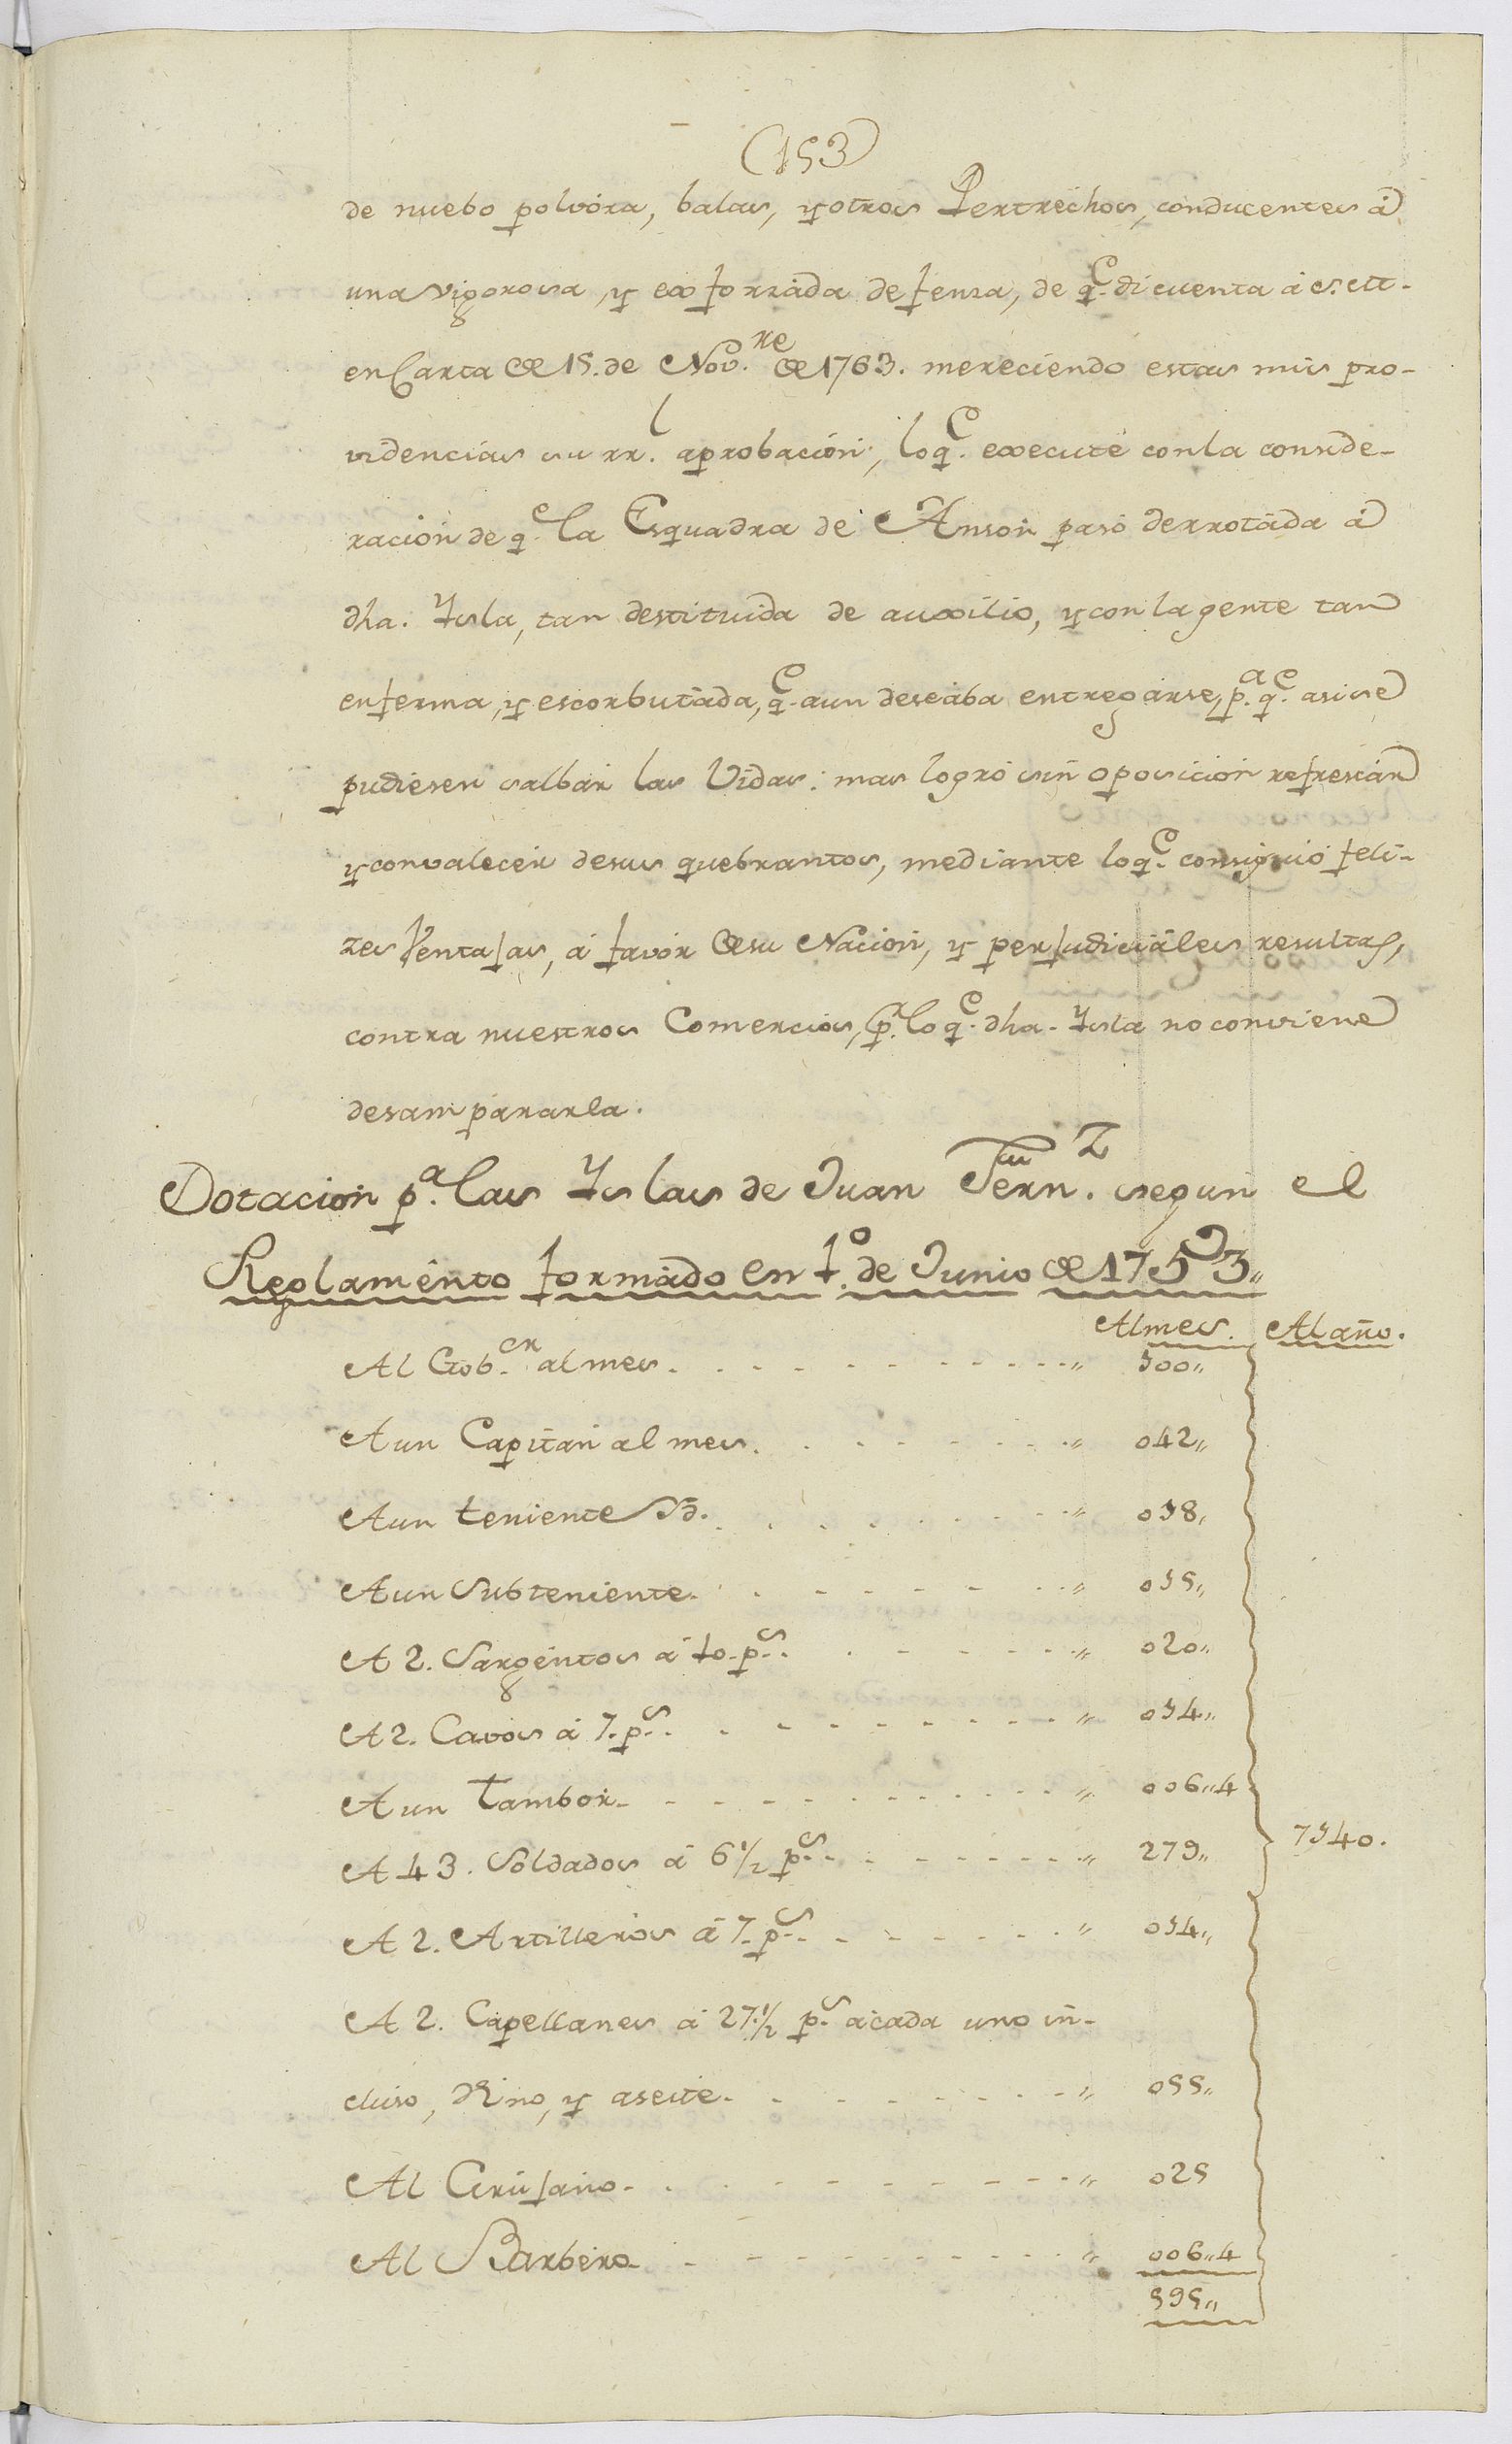 (153)
de nuebo polvóra, balas, y otros Pertrechos, conducentes á
una vigorosa, y exforzada defensa, de q.e di cuenta á S.M.
en Carta de 15. de Nov.re de 1763. mereciendo estas mis pro-
videncias su rr.l aprobacion, lo q.e executé con la conside-
racion de q.e la Esquadra de Anson pasó derrotada á
dha. Ysla, tan destituida de auxilio, y con la gente tan
enferma, y escorbutada, q.e aun deseaba entregarse, p.a q.e asi se
pudiesen salbar las Vidas: mas logró sin oposicion refrescar
y convalecer de sus quebrantos, mediante lo q.e consiguió feli-
zes Ventajas, á favor de su Nacion, y perjudiciales resultas,
contra nuestros Comercios, p.r lo q.e dha. Ysla no conviene
desampararla.
Dotacion p.a las Yslas de Juan Fern.z segun el
Reglamento formado en 1.o de Junio de 1753,,
Al mes. Al año.
Al Gob.or al mes. . . . . . . . . . . . ,, 100,,
A un Capitan al mes. . . . . . . . . ,, 042,,
A un teniente Yd. . . . . . . . . . ,, 018,,
A un Subteniente. . . . . . . . . ,, 015,,
A 2. Sargentos á 10. p.s . . . . . . . ,, 020,,
A 2. Cavos á 7. p.s . . . . . . . . . ,, 014,,
A un Tambor. . . . . . . . . . . ,, 006,,4
A 43. Soldados á 6 1/2 p.s . . . . . . . ,, 279,, 7140.
A 2. Artilleros á 7. p.s . . . . . . . ,, 014,,
A 2. Capellanes á 27. 1/2 p.s á cada uno in-
cluso, Vino, y aseite. . . . . . . . ,, 055,,
Al Cirujano. . . . . . . . . . . ,, 025
Al Barbero . . . . . . . . . . ,, 006,,4
595,,